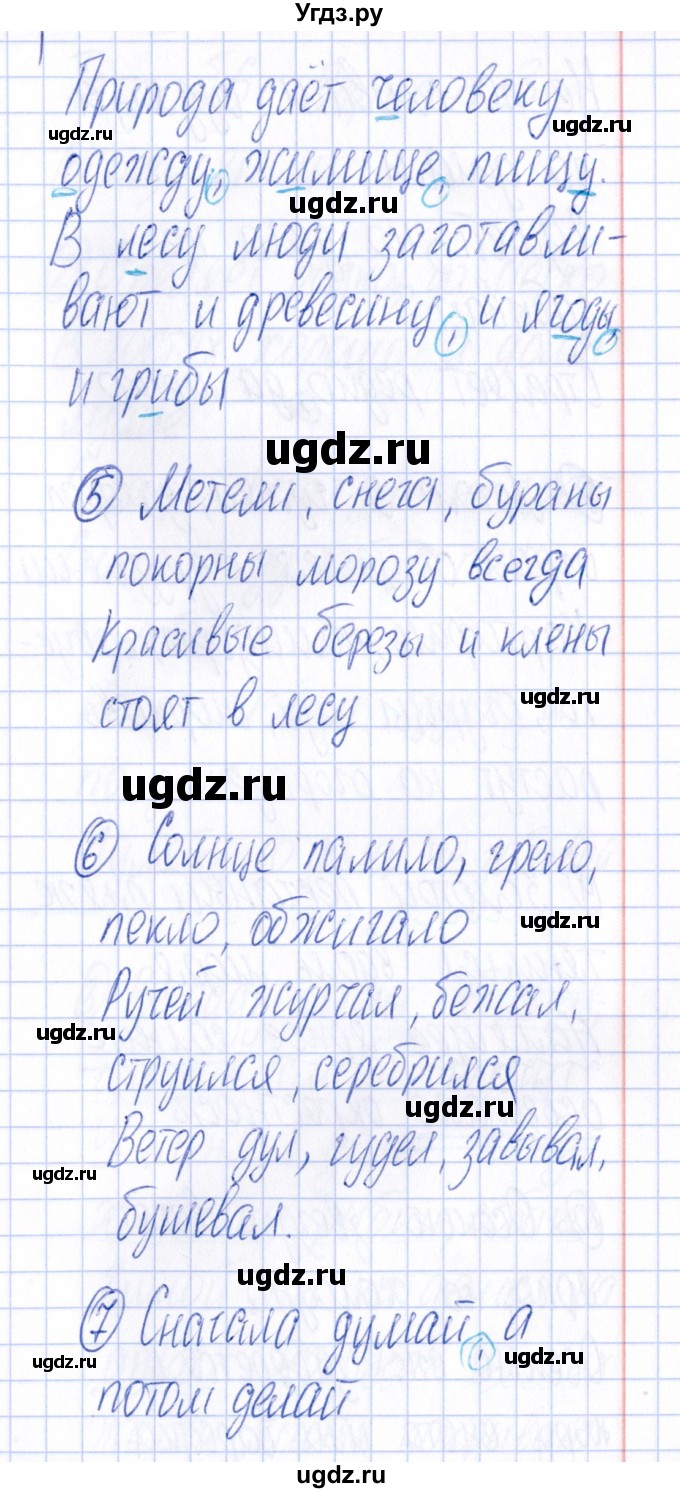 Угдз.ру
Природа даёт человеку
ugdz.ru ugdz.ru
одежду, жилище, пищу.
ugdz.ru
В лесу люди заготавли-
вают и древесину, и ягоды,
и грибы
ugdz.ru
5 Метели, снега, бураны
покорны морозу всегда
Красивые березы и клены
стоят в лесу ugdz.ru
ugdz.ru
6 Солнце палило, грело,
пекло, обжигало ugdz.ru
Ручей журчал, бежал,
ugdz.ru
струился, серебрился
ugdz.ru
Ветер дул, гудел, завывал,
ugdz.ru
бушевал.
ugdz.ru
7 Сначала думай, а
ugdz.ru ugdz.ru
потом делай
ugdz.ru